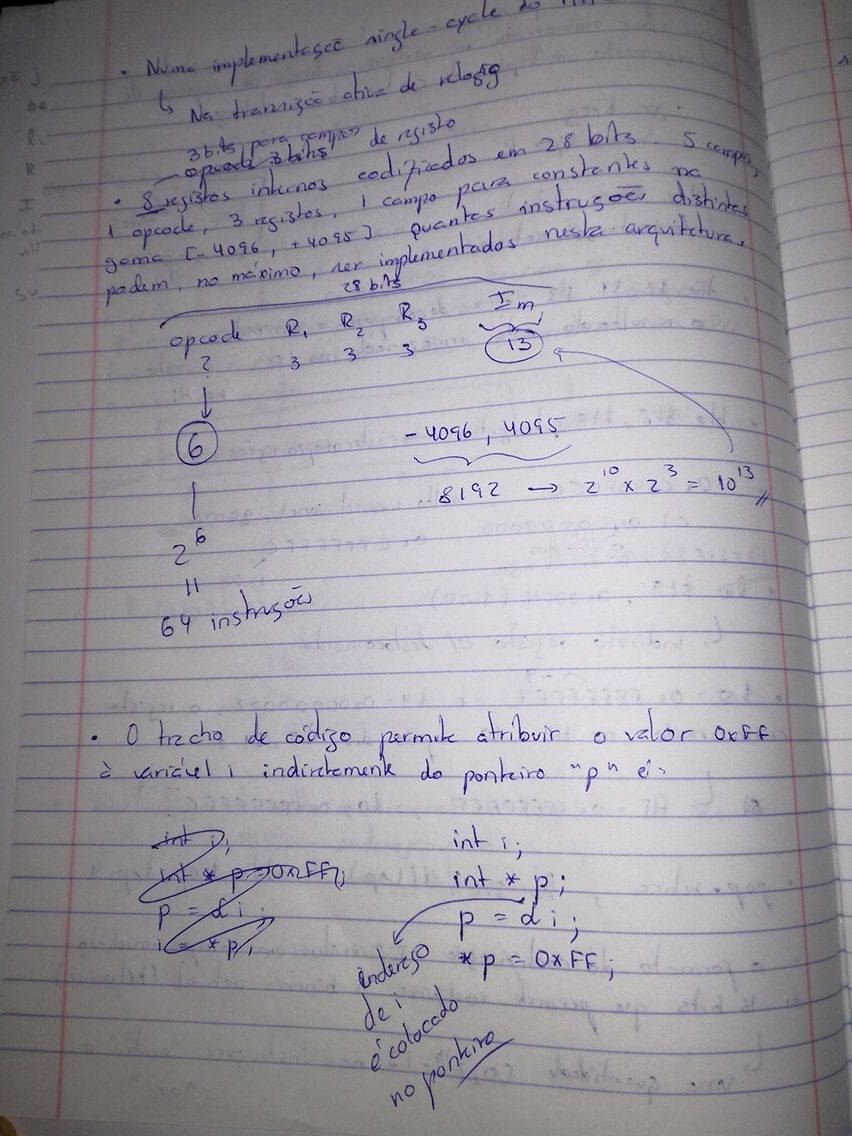 • Numa implementação single-cycle do
↳ Na transição ativa de relógio
3 bits para campos de registo
opcode 3 bits
• 8 registos internos codificados em 28 bits. 5 campos,
1 opcode, 3 registos, 1 campo para constantes na
gama [-4096, +4095]. quantas instruções distintas
podem, no máximo, ser implementados nesta arquitetura.
28 bits
opcode R1 R2 R3 Im
? 3 3 3 13
6
- 4096, 4095
8192 → 2^10 x 2^3 = 10^13 //
2^6
11
64 instruções
• O trecho de código permite atribuir o valor 0xFF
à variável i indiretamente do ponteiro "p" é.
int i;
int * p = 0xFF;
p = &i;
i = *p;
int i;
int * p;
p = &i;
*p = 0xFF;
endereço
de i
é colocado
no ponteiro